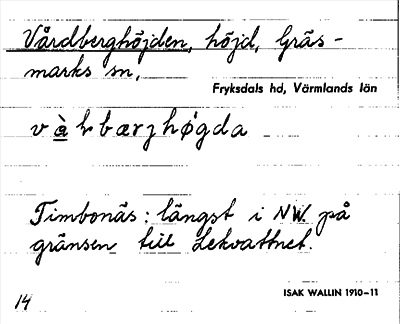 Vårdberghöjden, höjd, Gräs-
marks sn,
Fryksdals hd, Värmlands län
v à l b æ r j h ø̀ g d a
Timbonäs: längst i NW. på
gränsen till Lekvattnet.
ISAK WALLIN 1910–11
14